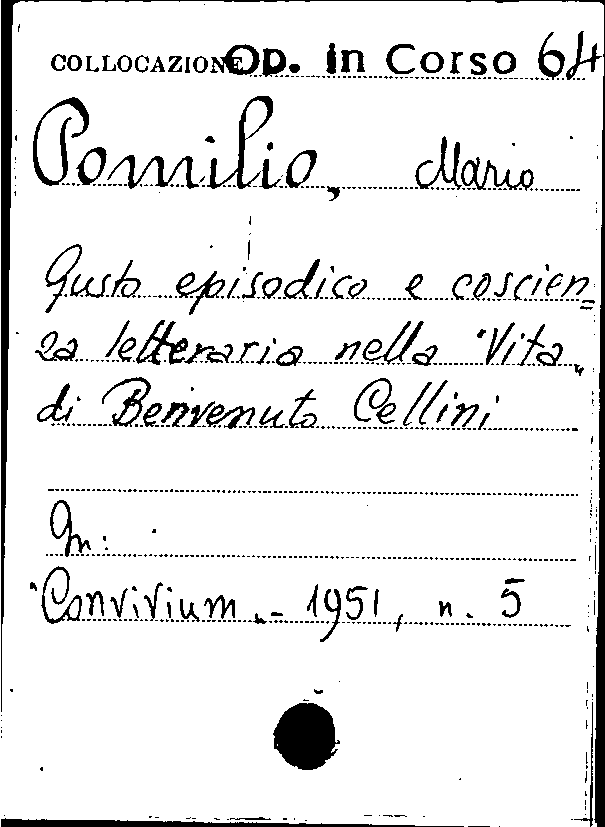 COLLOCAZIONE OP. in Corso 64
Pomilio, Mario
Gusto episodico e coscien=
za letteraria nella "Vita„
di Benvenuto Cellini
In:
"Convivium„ - 1951, n. 5